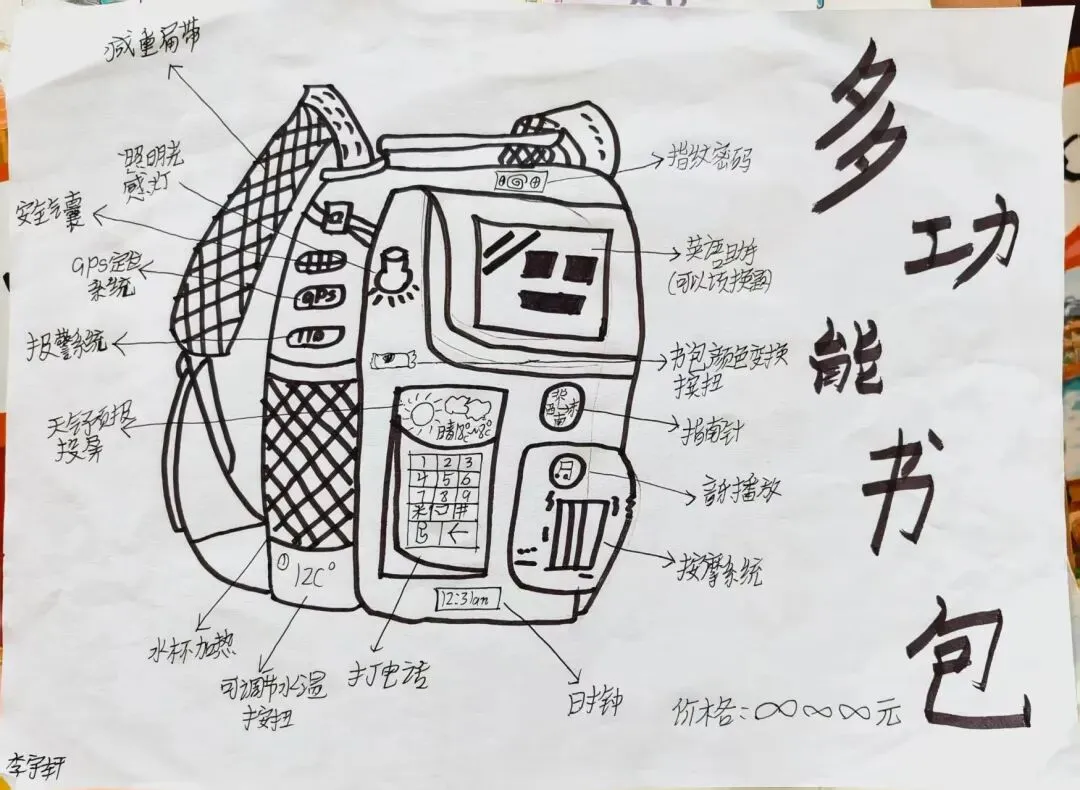 多功能书包
减重肩带
照明光
感灯
安全气囊
GPS定位
系统
报警系统
天气预报
投屏
水杯加热
可调节水温
按扭
打电话
时钟
指纹密码
英语助手
书包颜色变换
按扭
指南针
音乐播放
按摩系统
价格:∞∞∞元
李宇轩
GPS
110
晴18℃~8℃
1 2 3
4 5 6
7 8 9
←
12C°
12:31am
北
西 东
南